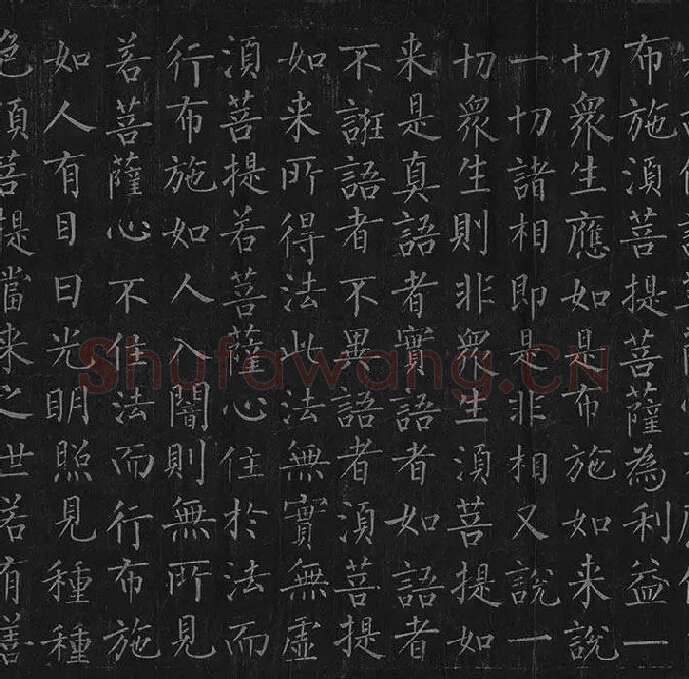 布施須菩提菩薩為利益一
切眾生應如是布施如来說
一切諸相即是非相又說一
切眾生則非眾生須菩提如
来是真語者實語者如語者
不誑語者不異語者須菩提
如来所得法此法無實無虛
須菩提若菩薩心住於法而
行布施如人入闇則無所見
若菩薩心不住法而行布施
如人有目日光明照見種種
色須菩提當来之世若有善
Shufawang.CN